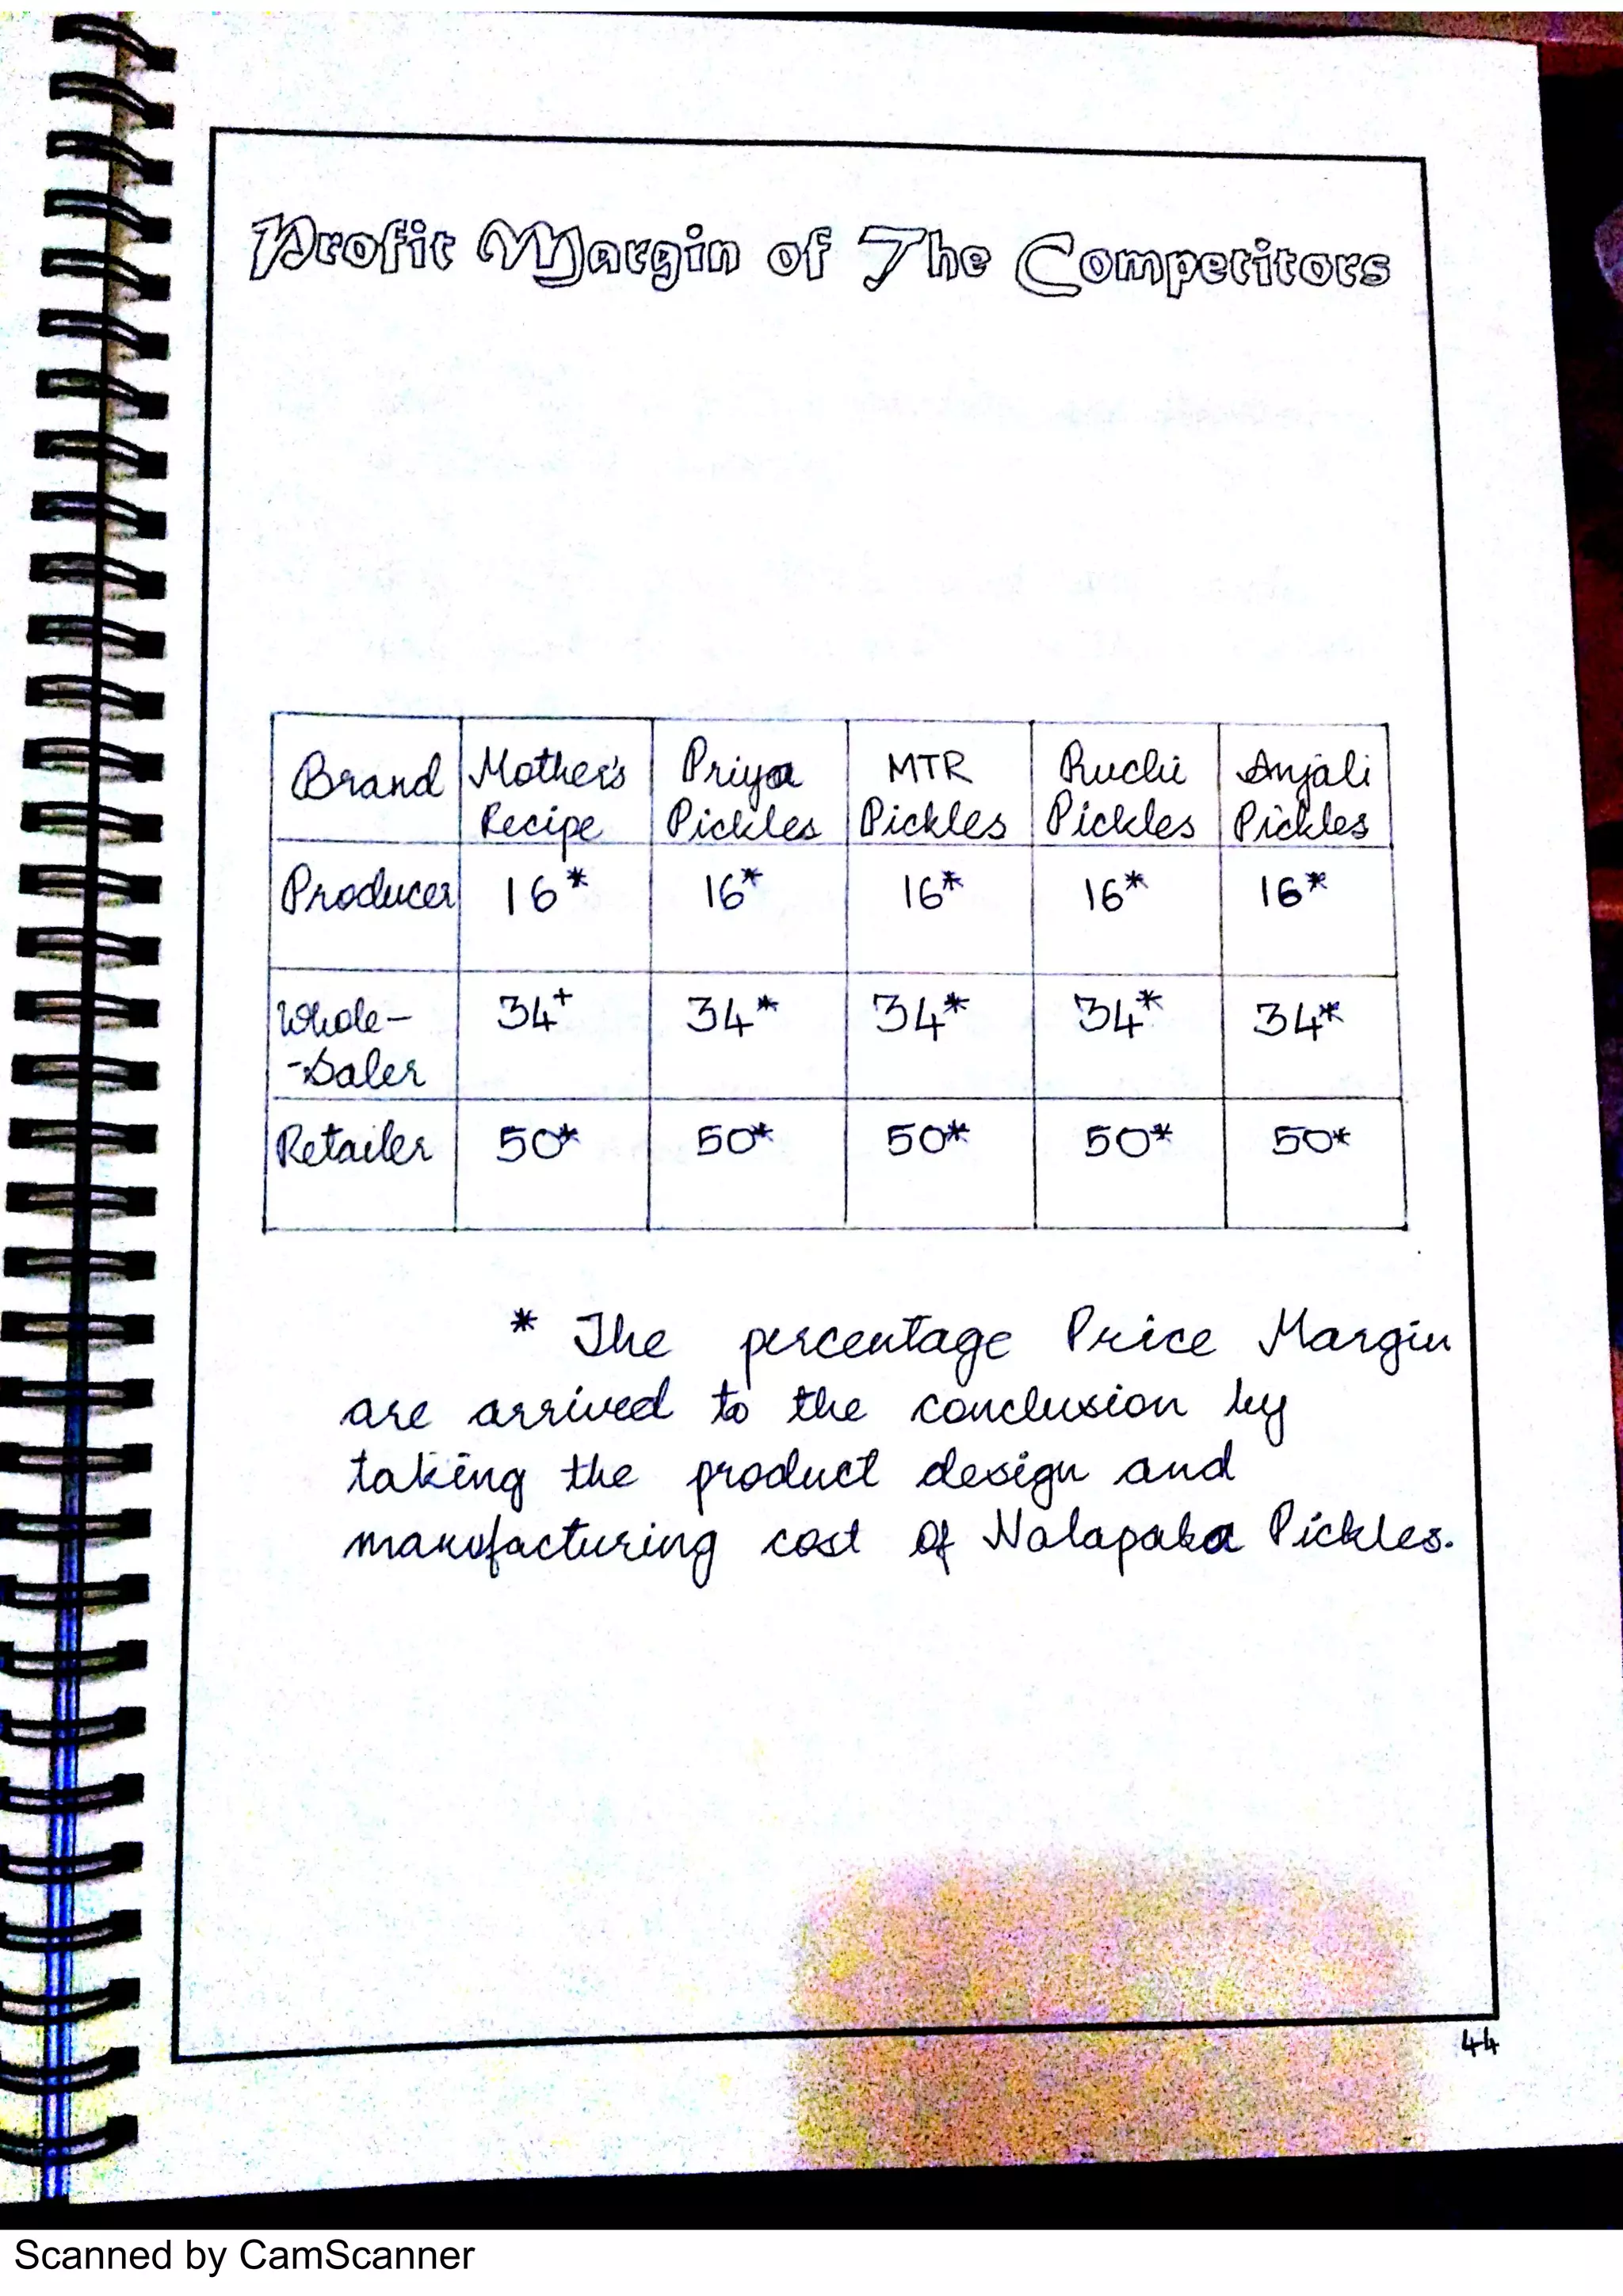 Profit Margin of The Competitors
Brand Mother's Recipe Priya Pickles MTR Pickles Ruchi Pickles Anjali Pickles
Producer 16* 16* 16* 16* 16*
Whole- -Saler 34+ 34* 34* 34* 34*
Retailer 50* 50* 50* 50* 50*
* The percentage Price Margin
are arrived to the conclusion by
taking the product design and
manufacturing cost of Nalapaka Pickles.
44
Scanned by CamScanner